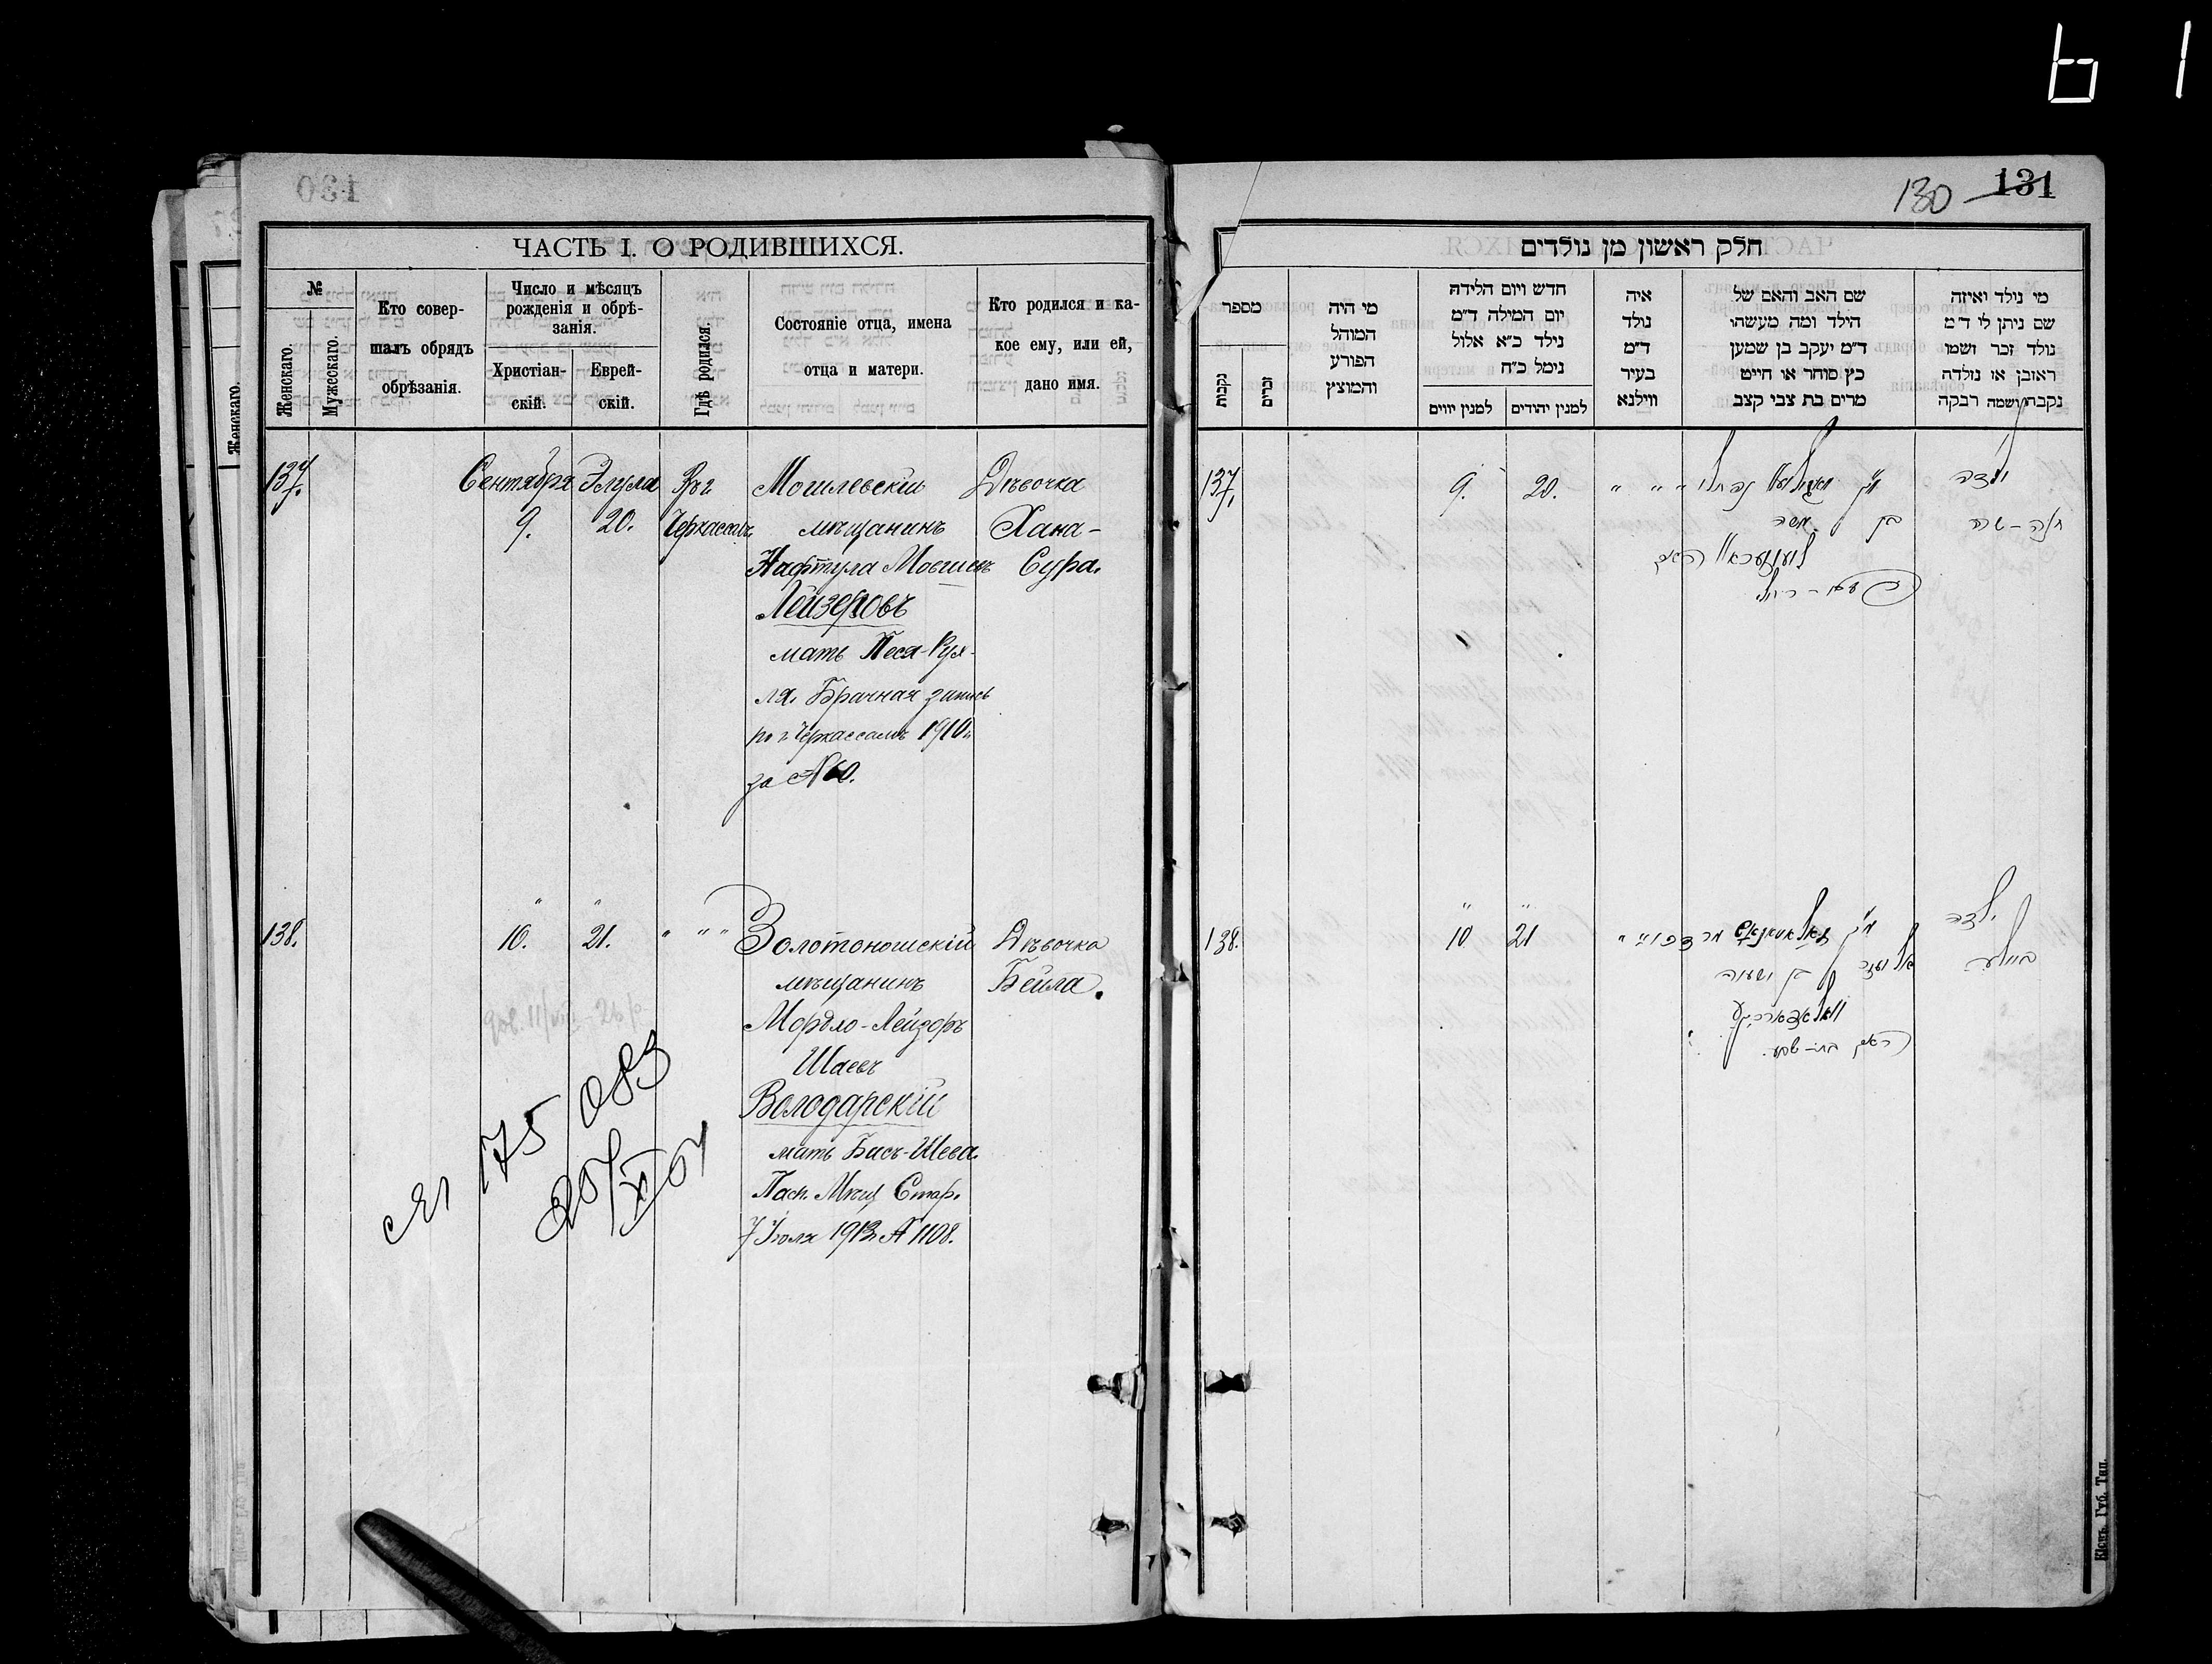 130 131
ЧАСТЬ I. О РОДИВШИХСЯ.
№
Женскаго.
Мужескаго.
Кто совер-
шалъ обрядъ
обрѣзанія.
Число и мѣсяцъ
рожденія и обрѣ-
занія.
Христіан-
скій.
Еврей-
скій.
Гдѣ родился.
Состояніе отца, имена
отца и матери.
Кто родился и ка-
кое ему, или ей,
дано имя.
137. Сентября Элула Въ г. Могилевскій Дѣвочка
9. 20. Черкассахъ мѣщанинъ Хана-
Нафтула Мовшевъ Сура.
Лейзеровъ
мать Песя-Рух-
ля. Брачная запись
по г. Черкассамъ 1910 г.
за №60.
138. " 10. " 21. " " " Золотоношскій Дѣвочка
мѣщанинъ Бейла.
Мордко-Лейзоръ
Шаевъ
Володарскій
мать Бася-Шева.
Пасп. Мѣщ. Стар.
7 Іюля 1913 № 1108.
175 083
חלק ראשון מן נולדים
מספר
נקבות
זכרים
מי היה
המוהל
הפורע
והמוצץ
חדש ויום הלידה
יום המילה ד״מ
נילד כ״א אלול
נימל כ״ח
למנין יוונים
למנין יהודים
איה
נולד
ד״מ
בעיר
ווילנא
שם האב והאם של
הילד ומה מעשהו
ד״מ יעקב בן שמען
כץ סוחר או חייט
מרים בת צבי קצב
מי נולד ואיזה
שם ניתן לו ד״מ
נולד זכר ושמו
ראובן או נולדה
נקבה ושמה רבקה
137. 9. 20. " " " נפתלי ילדה
בן משה חנה-שרה
138. " 10 " 21 ילדה
בן ישעיה ביילע
בת-שבע
Кіевъ. Губ. Тип.
Женскаго.